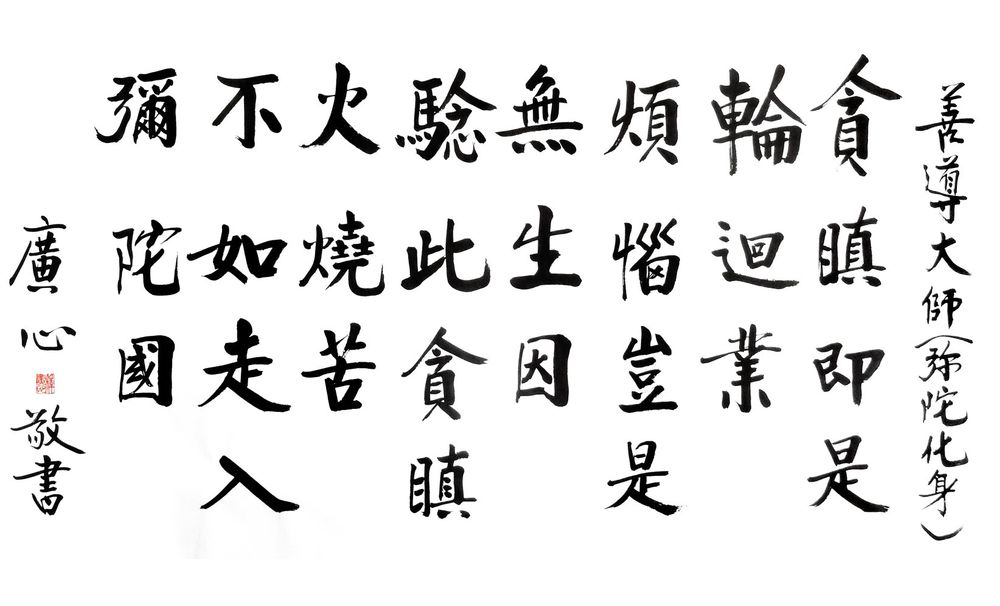 善導大師（弥陀化身）
貪瞋即是
輪迴業
煩惱豈是
無生因
驗此貪瞋
火燒苦
不如走入
彌陀國
廣心
敬書